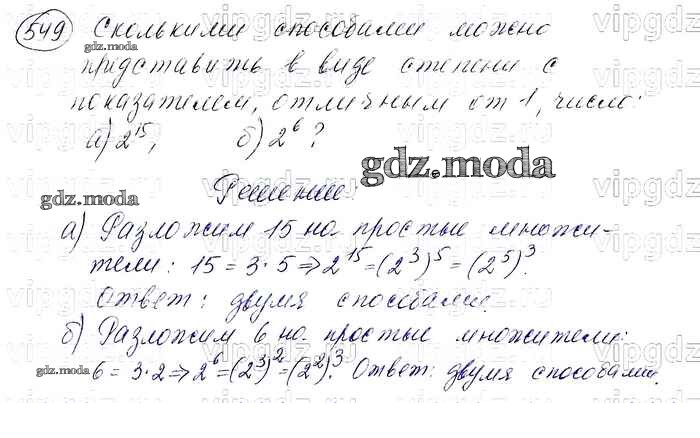 549 Сколькими способами можно
представить в виде степени с
показателем, отличным от 1, число:
а) 2^15, б) 2^6?
Решение.
а) Разложим 15 на простые множи-
тели: 15 = 3·5 ⇒ 2^15 = (2^3)^5 = (2^5)^3.
Ответ: двумя способами.
б) Разложим 6 на простые множители:
6 = 3·2 ⇒ 2^6 = (2^3)^2 = (2^2)^3. Ответ: двумя способами.
gdz.moda
gdz.moda
gdz.moda
gdz.moda
vipgdz